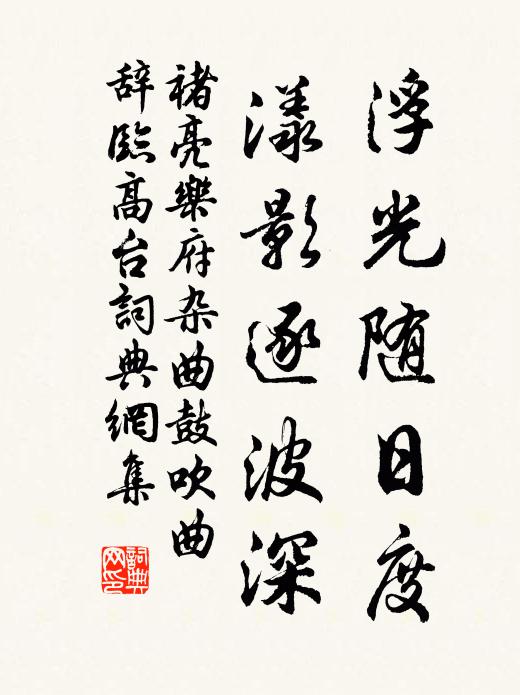 浮光随日度
漾影逐波深
褚亮樂府杂曲鼓吹曲
辞臨高台詞典網集
詞典网印